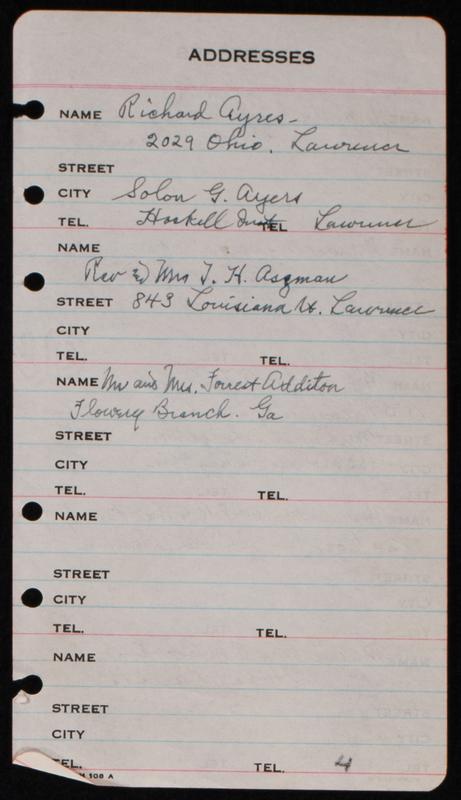 ADDRESSES
NAME Richard Ayres-
2029 Ohio. Lawrence
STREET
CITY Solon G. Ayers
TEL. Haskell Inst TEL Lawrence
NAME
Rev & Mrs T. H. Aszman
STREET 843 Louisiana St. Lawrence
CITY
TEL. TEL.
NAME Mr and Mrs. Forrest Additon
Flowery Branch. Ga
STREET
CITY
TEL. TEL.
NAME
STREET
CITY
TEL. TEL.
NAME
STREET
CITY
EL. TEL. 4
108 A